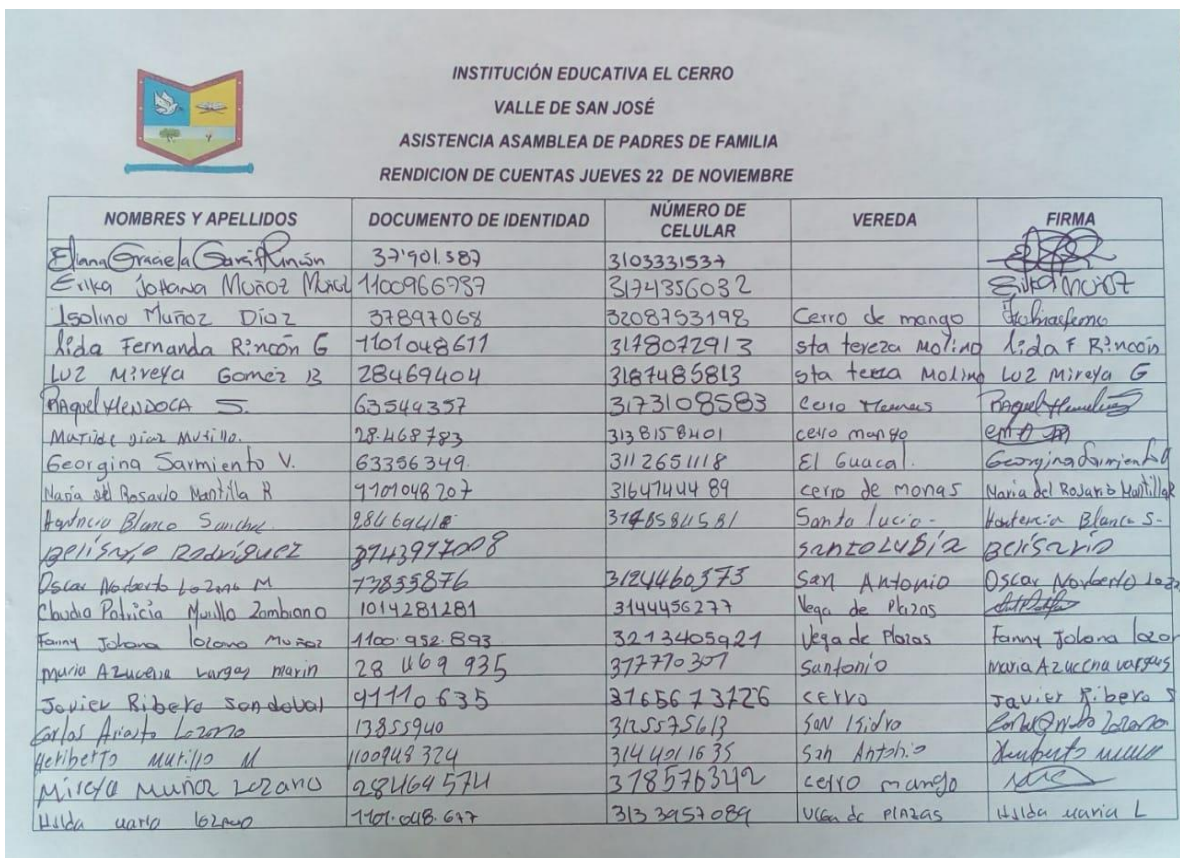 INSTITUCIÓN EDUCATIVA EL CERRO
VALLE DE SAN JOSÉ
ASISTENCIA ASAMBLEA DE PADRES DE FAMILIA
RENDICION DE CUENTAS JUEVES 22 DE NOVIEMBRE
NOMBRES Y APELLIDOS DOCUMENTO DE IDENTIDAD NÚMERO DE CELULAR VEREDA FIRMA
Eliana Graciela García Rincón 37'901.587 3103331537
Erika Johana Muñoz Muñoz 1100966737 3174356032 Erika Muñoz
Isolina Muñoz Díaz 37897068 3208753198 Cerro de mango
lida Fernanda Rincón G 1101048611 3178072913 sta tereza Molino lida F Rincón
Luz Mireya Gomez B 28469404 3187485813 sta tereza Molino Luz Mireya G
RAquel MENDOCA S. 63544357 3173108583 Cerro
Matilde Díaz Murillo. 28.468783 3138158401 cerro mango
Georgina Sarmiento V. 63356349. 3112651118 El Guacal. Georgina Sarmiento
Maria del Rosario Mantilla R 1101048207 3164744489 cerro de monas Maria del Rosario Mantilla R
Blanco 28469418 3178584581 Santa lucia- Hortencia Blanco S-
Belisario Rodríguez 5743977008 Belisario
Oscar Norberto Lozano M 73855876 3124460373 San Antonio Oscar Norberto
Claudia Patricia Murillo Zambrano 1014281281 3144456277 Vega de Plazas
Fanny Johana lozano Muñoz 1100.952.893 3213405921 Vega de Plazas Fanny Johana lozan
Maria Azucena vargas marin 28 469 935 317770307 Santonio Maria Azucena vargas
Javier Ribero Sandoval 91110635 3165673726 cerro Javier Ribero S
Carlos Ariosto Lozano 13855940 3125575613 San Isidro
Heriberto Murillo M 1100948324 3144011635 San Antonio
Mireya Muñoz Lozano 28469574 378576342 cerro mango
Hilda maria lozano 1101.048.677 3133957089 Vega de Plazas Hilda maria L